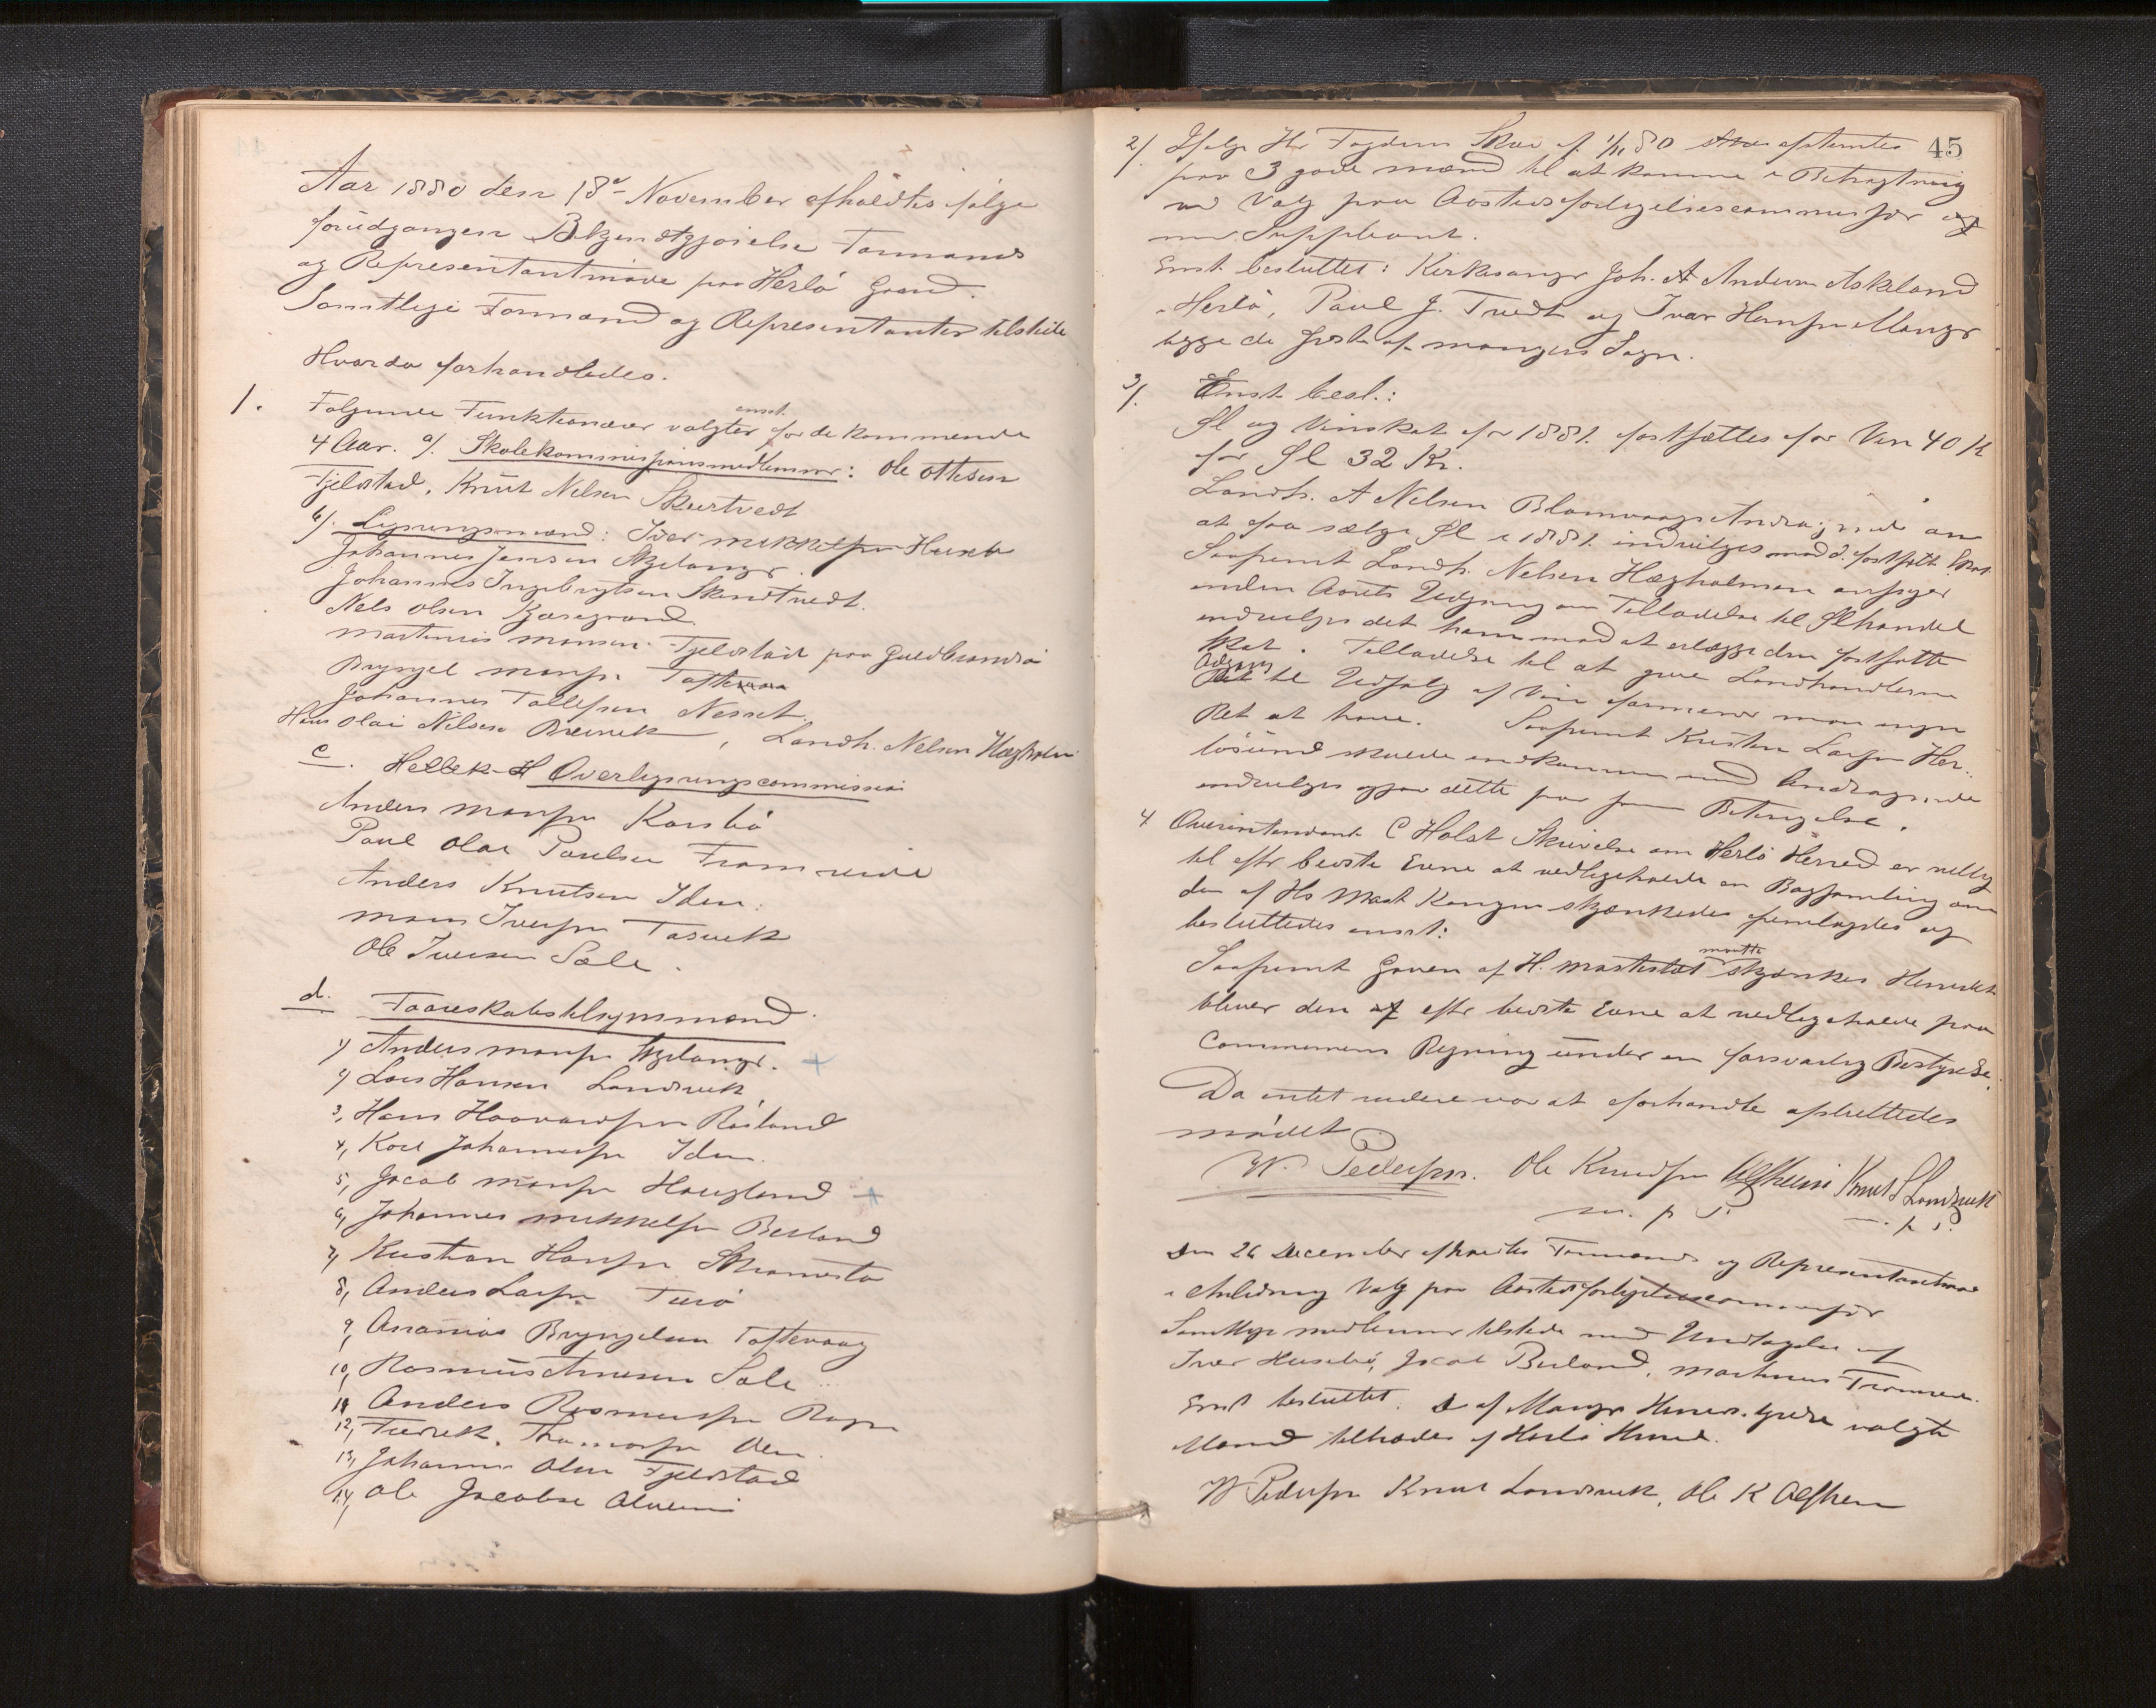 Aar 1880 den 18de November afholdtes ifølge
forudgangen Bekjendtgjørelse Formands
og Representantmøde paa Herlø Gaard.
Samtlige Formænd og Representanter tilstede
Hvorda forhandledes.
1. Følgende Funktionærer valgtes enst. for de kommende
4 Aar. a). Skolekommissionsmedlemmer: Ole Ottesen
Fjeldstad, Knut Nelsen Skurtvedt
b). Ligningsmænd: Iver Mikkelsen Husebø
Johannes Jensen Skjelanger.
Johannes Ingebrigtsen Skurtvedt.
Nels Olsen Kjæregaard.
Martinus Monsen Fjeldstad paa Guldbrandsø
Brynjel Monsen Tofte
Johannes Tollefsen Nesset.
Hans Olai Nilsen Breivik, Landh. Nelsen Hægholm
c. Overligningscommission
Anders Monsen Karsbø
Paul Olai Poulsen Fromreide
Anders Knutsen Iden.
Mons Iversen Tarvik
Ole Iversen Sæle.
d. Faareskabstilsynsmænd.
1) Anders Monsen Skjelanger.
2) Lars Hansen Landsvik
3, Hans Haavardsen Røsland
4, Kare Johannesen Iden.
5, Jacob Monsen Haugland
6, Johannes Mikkelsen Berland
7, Kristian Hansen
8, Anders Larsen Turø
9, Ananias Brynjelsen Toftevaag
10, Rasmus Arnesen Sæle
11 Anders Rasmussen
12, Fredrik Thomassen
13, Johannes Olsen Fjeldstad
14, Ole Jacobsen Alveim
45
2). Ifølge Hr Fogdens Skr. af 1/11 80 afstemtes
paa 3 gode Mænd til at komme i Betragtning
ved Valg paa Aastedsforligelsescommissær og
en Suppleant.
Enst. besluttet: Kirkesanger Joh. A Andersen Askeland
Herlø, Paul J. Tvedt og Ivar Hansen Manger
begge de sidste af Mangers Sogn.
3). Enst. besl.:
Øl og Vinskat for 1881. fastsættes for Vin 40 K
for Øl 32 Kr.
Landh. A Nelsen Blomvaags Andragende om
at faa sælge Øl i 1881. indvilges mod d. fastsatt Skat.
Saafremt Landh. Nelsen Hægholmen ansøger
inden Aarets Udgang om Tilladelse til Ølhandel
indvilges det ham mod at erlægge den fastsatte
Skat. Tilladelse til at give Landhandlerne
Adgang til Udsalg af Vin formener man ingen
Ret at have. Saafremt Kristen Larsen Her-
løsund skulde indkomme med Andragende
indvilges ogsaa dette paa samme Betingelse.
4 Overintendant C Holst Skrivelse om Herlø Herred er villig
til efter bedste Evne at vedligeholde en Bogsamling om
den af Hs Maet Kongen skjænkedes fremlagdes og
besluttedes enst:
Saafremt Gaven af H. Majestæt maatte skjænkes Herredet
bliver den efter bedste Evne at vedligeholde paa
Communens Regning under en forsvarlig Bestyrelse.
Da intet videre var at forhandle afsluttedes
mødet
W. Pedersen. Ole Knudsen Alfheim Knut L Landsvik
m. p. P. m. p. P.
Den 26 December afholdtes Formands og Representantmøde
i Anledning Valg paa Aastedsforligelsescommissær
Samtlige Medlemmer tilstede med Undtagelse af
Iver Husebø, Jacob Berland, Martinus Fromreide.
Enst besluttet. De af Manger Herredstyre valgte
Mænd tiltrædes af Herlø Herred.
W Pedersen Knut Landsvik, Ole K Alfheim